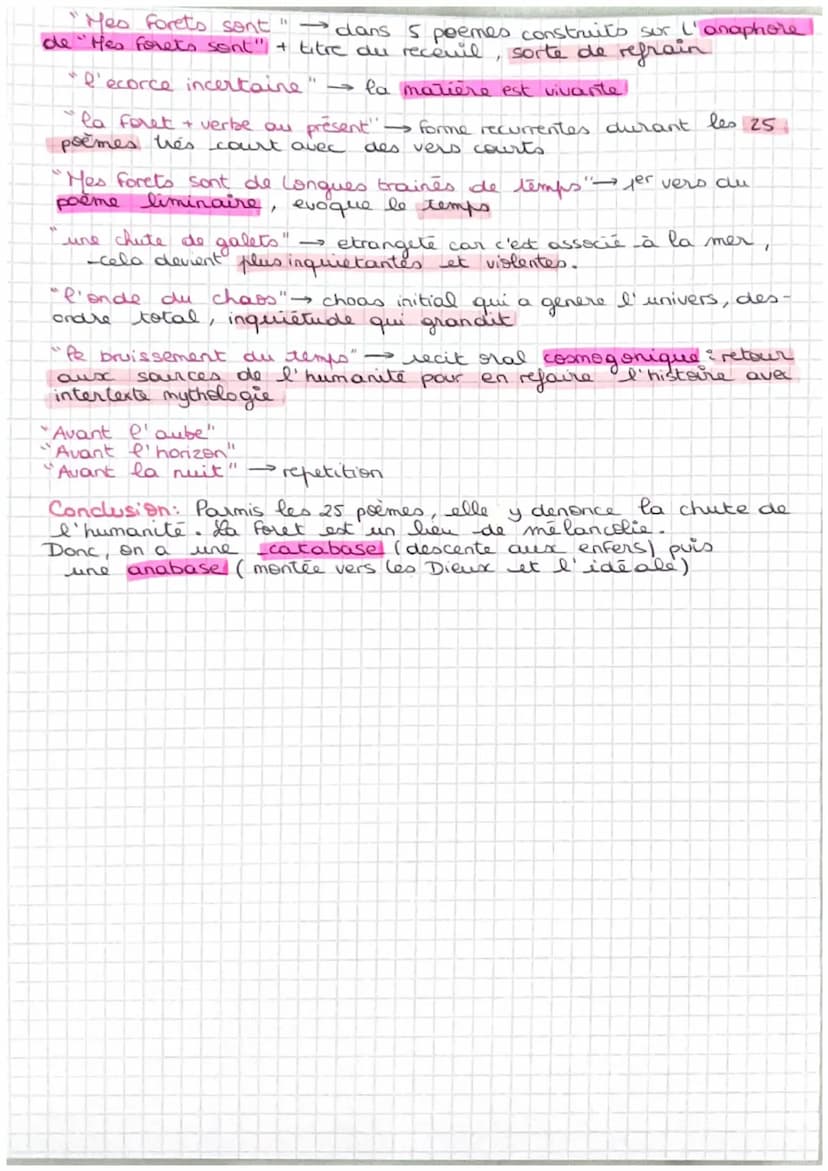 "Mes forets sont" → dans 5 poemes construits sur l'anaphore
de "Mes forets sont" + titre du receuil, sorte de refrain
"l'ecorce incertaine" → la matière est vivante
"la foret + verbe au présent" → forme recurrentes durant les 25
poèmes très court avec des vers courts
"Mes forets sont de longues trainés de temps" → 1er vers du
poème liminaire, evoque le temps
"une chute de galets" → etrangeté car c'est associé à la mer,
cela devient plus inquietantes et violentes.
"l'onde du chaos" → choas initial qui a genere l'univers, des-
ordre total, inquiétude qui grandit
"le bruissement du temps" → recit oral cosmogonique : retour
aux sources de l'humanité pour en refaire l'histoire avec
intertexte mythologie
"Avant l'aube"
"Avant l'horizon"
"Avant la nuit" → repetition
Conclusion: Parmis les 25 poèmes, elle y denonce la chute de
l'humanité. La foret est un lieu de mélancolie.
Donc, on a une catabase (descente aux enfers) puis
une anabase (montée vers les Dieux et l'idéale)